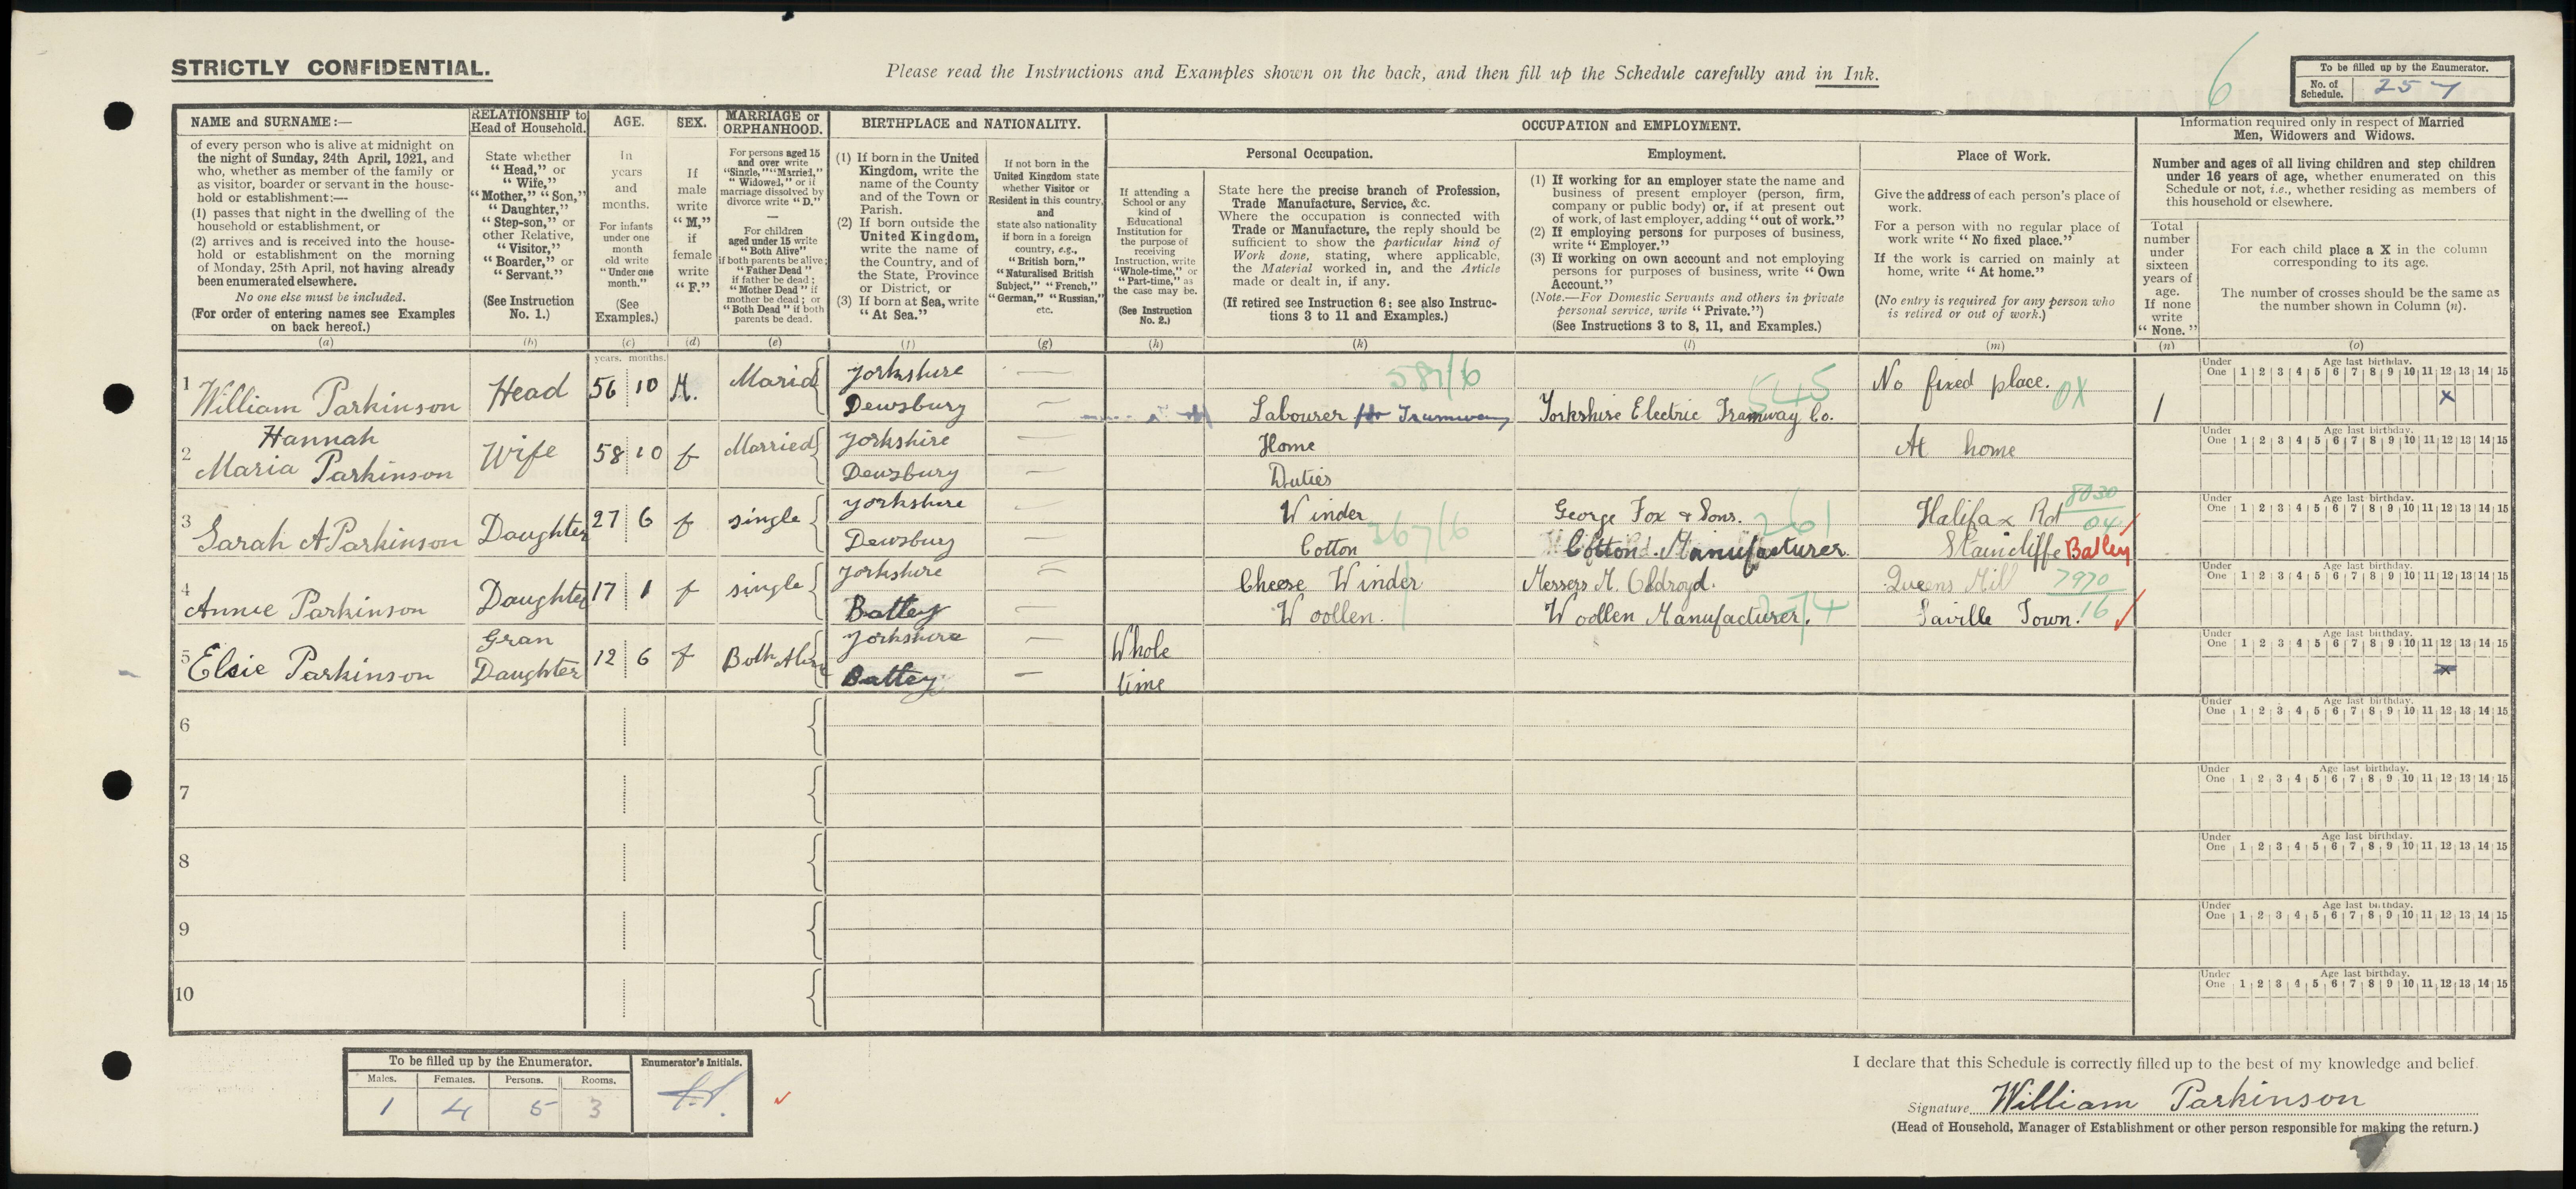 STRICTLY CONFIDENTIAL.
Please read the Instructions and Examples shown on the back, and then fill up the Schedule carefully and in Ink.
6
To be filled up by the Enumerator.
No. of Schedule. 257
NAME and SURNAME:—
of every person who is alive at midnight on
the night of Sunday, 24th April, 1921, and
who, whether as member of the family or
as visitor, boarder or servant in the house-
hold or establishment:—
(1) passes that night in the dwelling of the
household or establishment, or
(2) arrives and is received into the house-
hold or establishment on the morning
of Monday, 25th April, not having already
been enumerated elsewhere.
No one else must be included.
(For order of entering names see Examples
on back hereof.)
(a)
RELATIONSHIP to
Head of Household.
State whether
"Head," or
"Wife,"
"Mother," "Son,"
"Daughter,"
"Step-son," or
other Relative,
"Visitor,"
"Boarder," or
"Servant."
(See Instruction
No. 1.)
(b)
AGE.
In
years
and
months.
For infants
under one
month
old write
"Under one
month."
(See
Examples.)
(c)
SEX.
If
male
write
"M,"
if
female
write
"F."
(d)
MARRIAGE or
ORPHANHOOD.
For persons aged 15
and over write
"Single," "Married,"
"Widowed," or if
marriage dissolved by
divorce write "D."
—
For children
aged under 15 write
"Both Alive"
if both parents be alive;
"Father Dead"
if father be dead;
"Mother Dead" if
mother be dead; or
"Both Dead" if both
parents be dead.
(e)
BIRTHPLACE and NATIONALITY.
(1) If born in the United
Kingdom, write the
name of the County
and of the Town or
Parish.
(2) If born outside the
United Kingdom,
write the name of
the Country, and of
the State, Province
or District, or
(3) If born at Sea, write
"At Sea."
(f)
If not born in the
United Kingdom state
whether Visitor or
Resident in this country,
and
state also nationality
if born in a foreign
country, e.g.,
"British born,"
"Naturalised British
Subject," "French,"
"German," "Russian,"
etc.
(g)
OCCUPATION and EMPLOYMENT.
If attending a
School or any
kind of
Educational
Institution for
the purpose of
receiving
Instruction, write
"Whole-time," or
"Part-time," as
the case may be.
(See Instruction
No. 2.)
(h)
Personal Occupation.
State here the precise branch of Profession,
Trade Manufacture, Service, &c.
Where the occupation is connected with
Trade or Manufacture, the reply should be
sufficient to show the particular kind of
Work done, stating, where applicable,
the Material worked in, and the Article
made or dealt in, if any.
(If retired see Instruction 6: see also Instruc-
tions 3 to 11 and Examples.)
(k)
Employment.
(1) If working for an employer state the name and
business of present employer (person, firm,
company or public body) or, if at present out
of work, of last employer, adding "out of work."
(2) If employing persons for purposes of business,
write "Employer."
(3) If working on own account and not employing
persons for purposes of business, write "Own
Account."
(Note.—For Domestic Servants and others in private
personal service, write "Private.")
(See Instructions 3 to 8, 11, and Examples.)
(l)
Place of Work.
Give the address of each person's place of
work.
For a person with no regular place of
work write "No fixed place."
If the work is carried on mainly at
home, write "At home."
(No entry is required for any person who
is retired or out of work.)
(m)
Information required only in respect of Married
Men, Widowers and Widows.
Number and ages of all living children and step children
under 16 years of age, whether enumerated on this
Schedule or not, i.e., whether residing as members of
this household or elsewhere.
Total
number
under
sixteen
years of
age.
If none
write
"None."
(n)
For each child place a X in the column
corresponding to its age.
The number of crosses should be the same as
the number shown in Column (n).
(o)
years. months.
Under One Age last birthday. 1 2 3 4 5 6 7 8 9 10 11 12 13 14 15
1 William Parkinson Head 56 10 M. Maried Yorkshire Dewsbury
587/6
Labourer Tramway
545
Yorkshire Electric Tramway Co.
No fixed place. OX
1 x
2 Hannah
Maria Parkinson Wife 58 10 f Married Yorkshire Dewsbury
Home
Duties
At home
Under One Age last birthday. 1 2 3 4 5 6 7 8 9 10 11 12 13 14 15
3 Sarah A Parkinson Daughter 27 6 f single Yorkshire Dewsbury
Winder
Cotton
367/6
George Fox & Sons. 261
Cotton Manufacturer
Halifax Rd 8030
04
Staincliffe Batley
Under One Age last birthday. 1 2 3 4 5 6 7 8 9 10 11 12 13 14 15
4 Annie Parkinson Daughter 17 1 f single Yorkshire Batley
Cheese Winder
Woollen.
Messers M. Oldroyd.
Woollen Manufacturer. 274
Queens Mill 7970
Saville Town. 16
Under One Age last birthday. 1 2 3 4 5 6 7 8 9 10 11 12 13 14 15
5 Elsie Parkinson Gran Daughter 12 6 f Both Alive Yorkshire Batley
Whole
time
Under One Age last birthday. 1 2 3 4 5 6 7 8 9 10 11 12 13 14 15
6
Under One Age last birthday. 1 2 3 4 5 6 7 8 9 10 11 12 13 14 15
7
Under One Age last birthday. 1 2 3 4 5 6 7 8 9 10 11 12 13 14 15
8
Under One Age last birthday. 1 2 3 4 5 6 7 8 9 10 11 12 13 14 15
9
Under One Age last birthday. 1 2 3 4 5 6 7 8 9 10 11 12 13 14 15
10
Under One Age last birthday. 1 2 3 4 5 6 7 8 9 10 11 12 13 14 15
To be filled up by the Enumerator.
Males. Females. Persons. Rooms.
1 4 5 3
Enumerator's Initials.
I declare that this Schedule is correctly filled up to the best of my knowledge and belief.
Signature William Parkinson
(Head of Household, Manager of Establishment or other person responsible for making the return.)